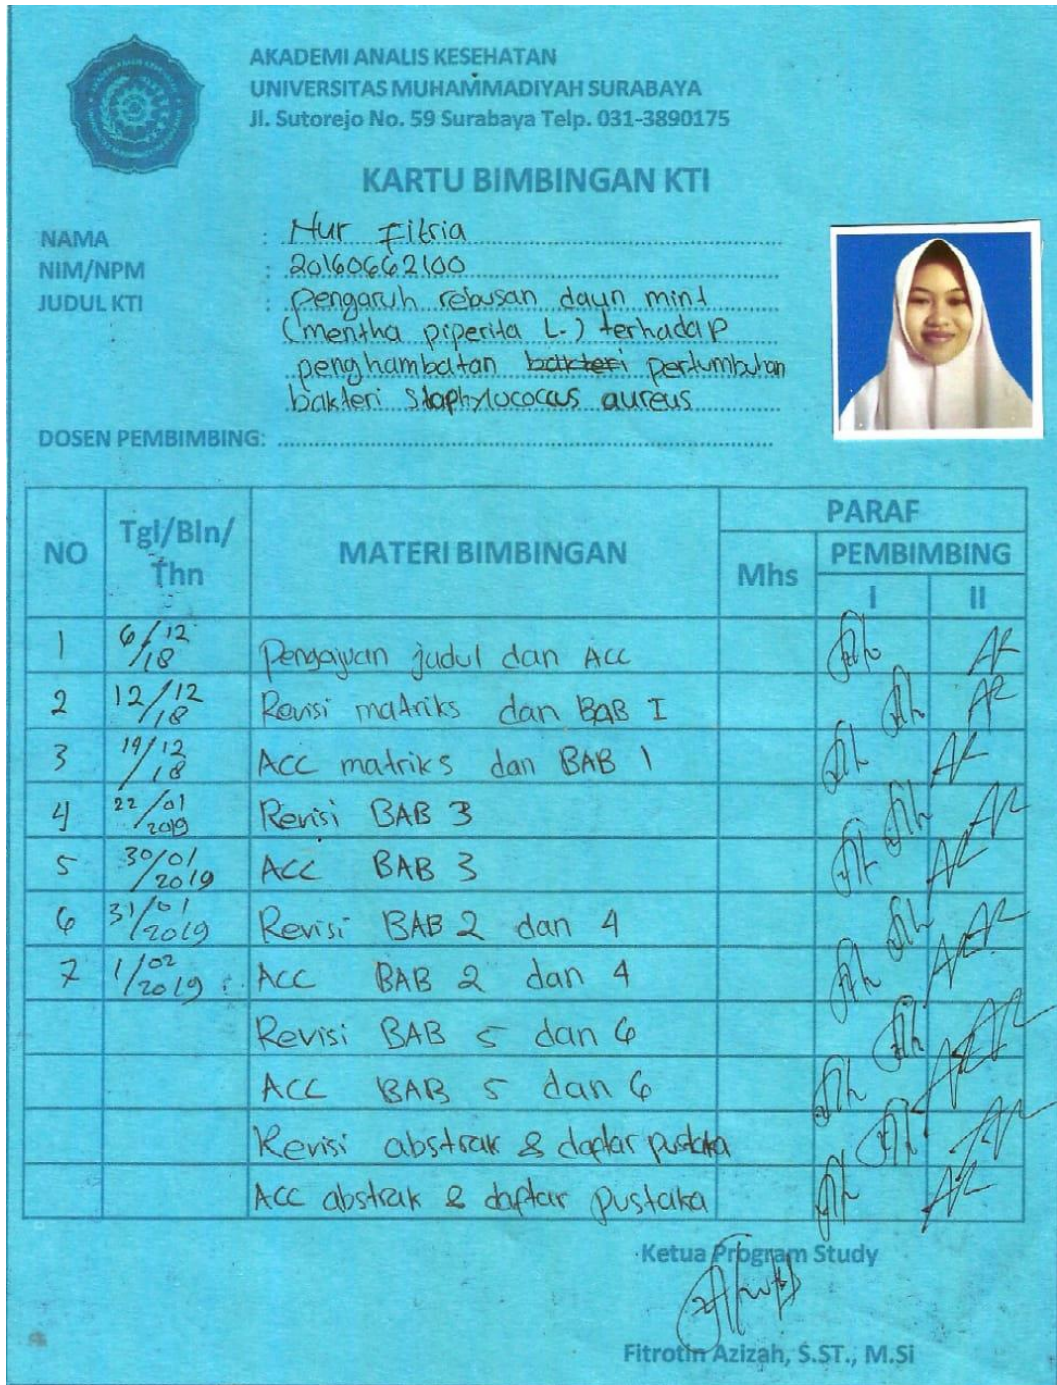 AKADEMI ANALIS KESEHATAN
UNIVERSITAS MUHAMMADIYAH SURABAYA
Jl. Sutorejo No. 59 Surabaya Telp. 031-3890175
KARTU BIMBINGAN KTI
NAMA : Nur Fitria
NIM/NPM : 20160662100
JUDUL KTI : Pengaruh rebusan daun mint
(mentha piperita L.) terhadap
penghambatan bakteri pertumbuhan
bakteri Staphylococcus aureus
DOSEN PEMBIMBING:
NO Tgl/Bln/Thn MATERI BIMBINGAN PARAF
Mhs PEMBIMBING
I II
1 6/12/18 Pengajuan judul dan Acc
2 12/12/18 Revisi matriks dan BAB I
3 19/12/18 ACC matriks dan BAB 1
4 22/01/2019 Revisi BAB 3
5 30/01/2019 ACC BAB 3
6 31/01/2019 Revisi BAB 2 dan 4
7 1/02/2019 ACC BAB 2 dan 4
Revisi BAB 5 dan 6
ACC BAB 5 dan 6
Revisi abstrak & daftar pustaka
ACC abstrak & daftar pustaka
Ketua Program Study
Fitrotin Azizah, S.ST., M.Si